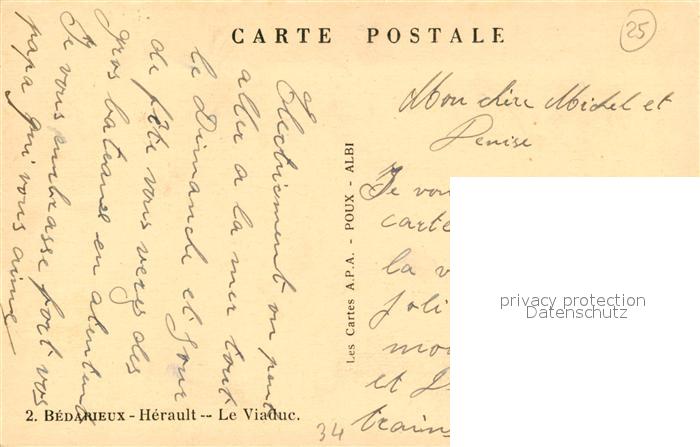 CARTE POSTALE
25
Mon cher Michel et
Denise
Je vou
carte
la v
joli
mo
et
trains
Electriement on peut
aller a la mer tout
le Dimanche et jour
de fête vous verez des
gros bateaux en atendent
Je vous embrasse fort vos
papa qui vous aime
Les Cartes A.P.A. - POUX - ALBI
privacy protection
Datenschutz
2. BÉDARIEUX - Hérault -- Le Viaduc.
34